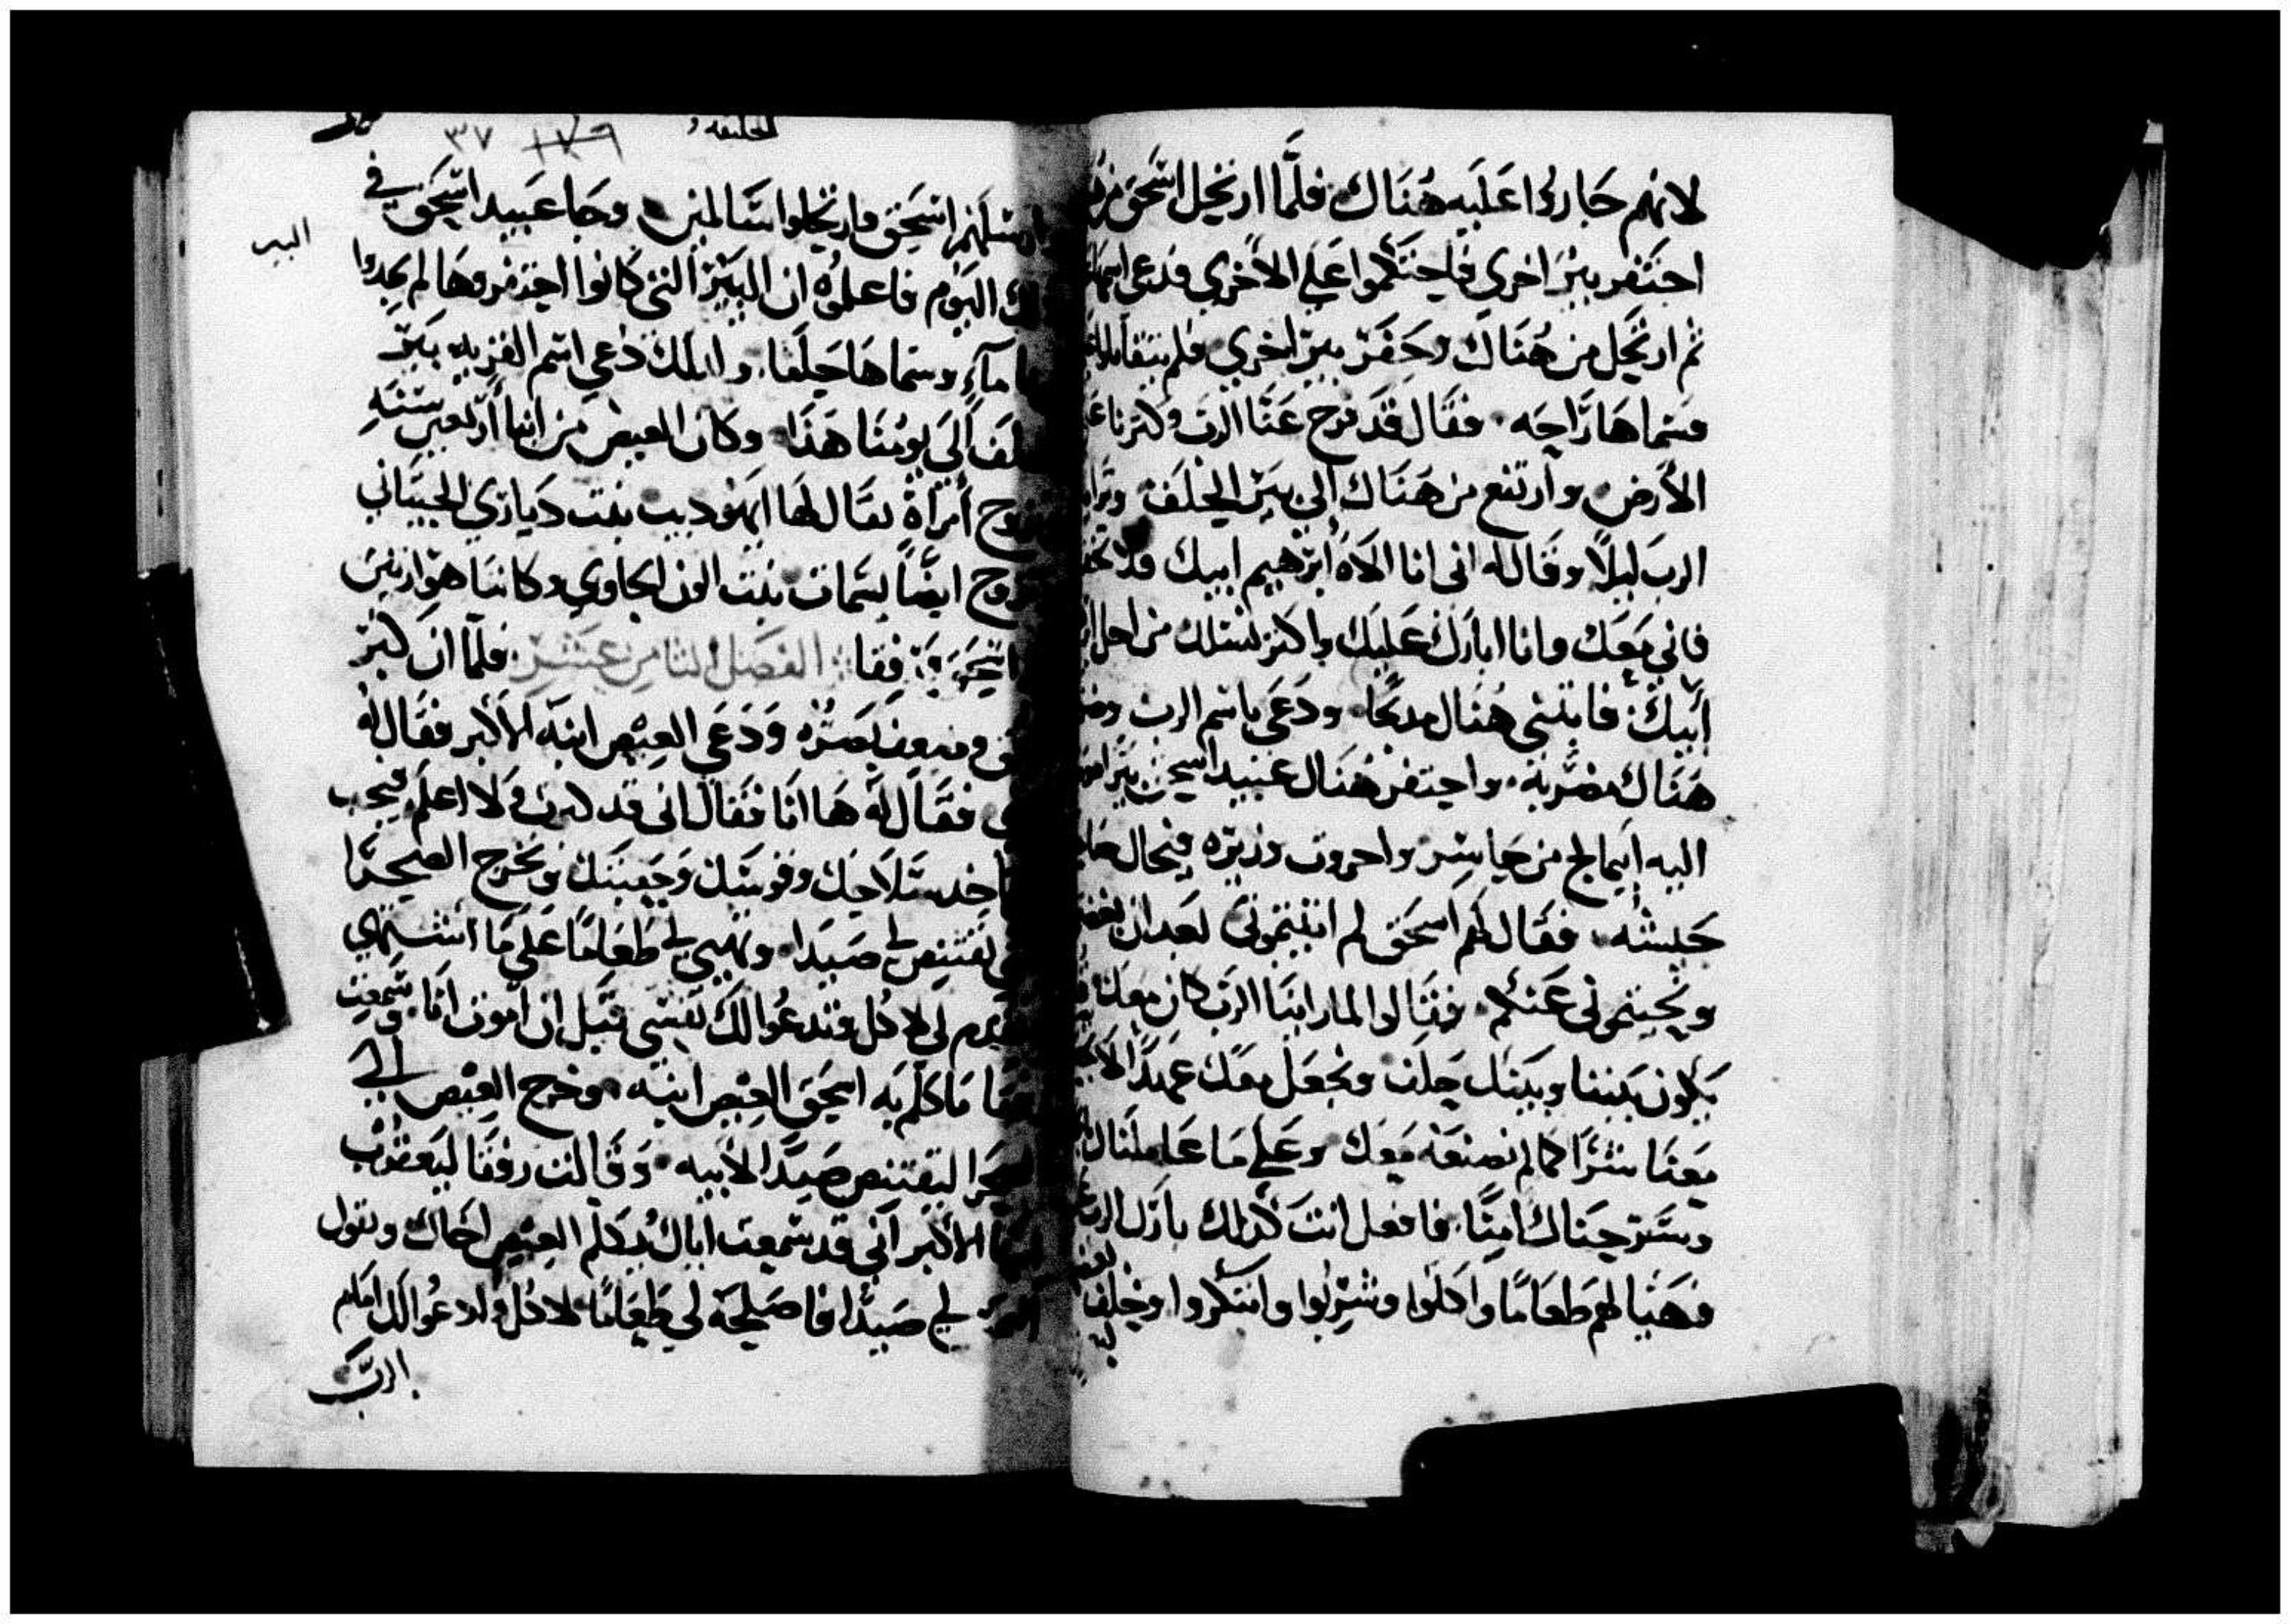 لانهم جاروا عليه هناك فلما ارتحل اسحق من
احتفر بير اخري فاحتكموا علي الاخري فدعي اسمها
ثم ارتحل من هناك وحفر بير اخري فلم يتقاتلوا
فسماها راحه فقال قد فرج عنا الرب وكثرنا
الارض وارتفع من هناك الي بير الحلف
الرب ليلا وقال له اني انا الاه ابرهيم ابيك فلا تخف
فاني معك وانا ابارك عليك واكثر نسلك من اجل
ابيك فابتني هناك مدبحا ودعي باسم الرب
هناك مضربه واحتفر هناك عبيد اسحق بير
اليه ابيمالخ من جاسر واحروف وزيره وفيخال
جيشه فقال لهم اسحق لم اتيتموني بعد ان
ونحيتموني عنكم فقالوا لما راينا الرب كان معك
يكون بيننا وبينك حلف ونجعل معك عهدا
معنا شرا كما لم نصنعه معك وعلي ما عاملناك
وسرحناك امنا فافعل انت كذلك بارك الرب
فهيا لهم طعاما واكلوا وشربوا وابتكروا وحلف
الحليفه
٣٧ ١٧٩
ارسلهم اسحق وارتحلوا سالمين وجا عبيد اسحق في
البير
اليوم فاعلموه ان البير التي كانوا احتفروها لم يجدوا
ماء وسماها حلفا والملك دعي اسم القريه بير
حلف الي يومنا هذا وكان العيص من ابنا اربعين سنه
تزوج امراة يقال لها ايهوديت بنت دياري الحيتاني
تزوج ايضا بسمات بنت الون الحاوي وكانتا هوا ريس
اسحق ورفقا الفصل الثامن عشر فلما ان كبر
وضعف بصره ودعي العيص ابنه الاكبر فقال له
فقال له ها انا فقال اني قد كبرت ولا اعلم فيجب
تاخد سلاحك وقوسك وجعبتك وتخرج الصحرا
تقتنص لي صيدا وتهيي لي طعاما علي ما اشتهي
تقدم لي لاكل فتدعوا لك نفسي قبل ان اموت انا وسمعت
رفقا ما كلم به اسحق العيص ابنه وخرج العيص الي
الصحرا ليقتنص صيدا لابيه وقالت رفقا ليعقوب
الاكبر اني قد سمعت اباك يكلم العيص اخاك ويقول
لي صيدا فاصلحه لي طعاما لاكل وادعوا لك امام
الرب